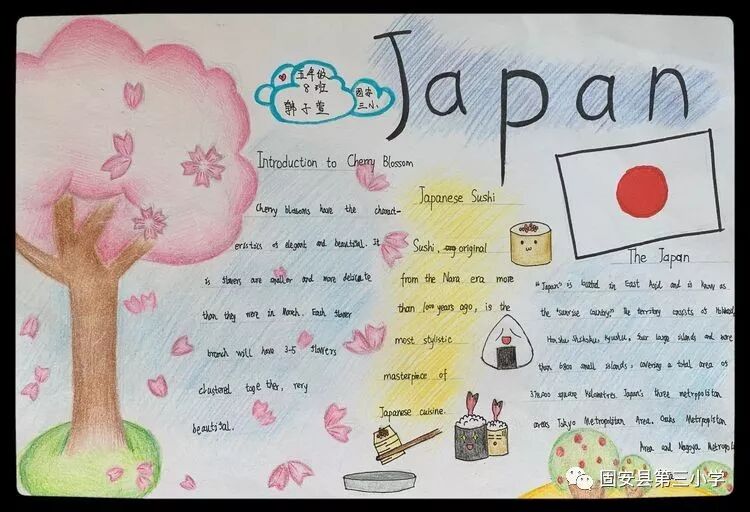 五年级
8班
郭子萱
固安
三小
Japan
Introduction to Cherry Blossom
Cherry blossoms have the charact-
eristics of elegant and beautiful. It
is flowers are smaller and more delicate
than they were in March. Each flower
branch will have 3-5 flowers
clustered together, very
beautiful.
Japanese Sushi
Sushi, original
from the Nara era more
than 1000 years ago, is the
most stylistic
masterpiece of
Japanese cuisine.
The Japan
"Japan" is located in East Asia and is know as
the "sunrise country" The territory consists of Hokkaido,
Honshu Shikoku, Kyushu, four large islands and more
than 6800 small islands, covering a total area of
378,000 square kilometres Japan's three metropolitan
areas Tokyo Metropolitan Area. Osaka Metropolitan
Area and Nagoya Metropoli
固安县第三小学